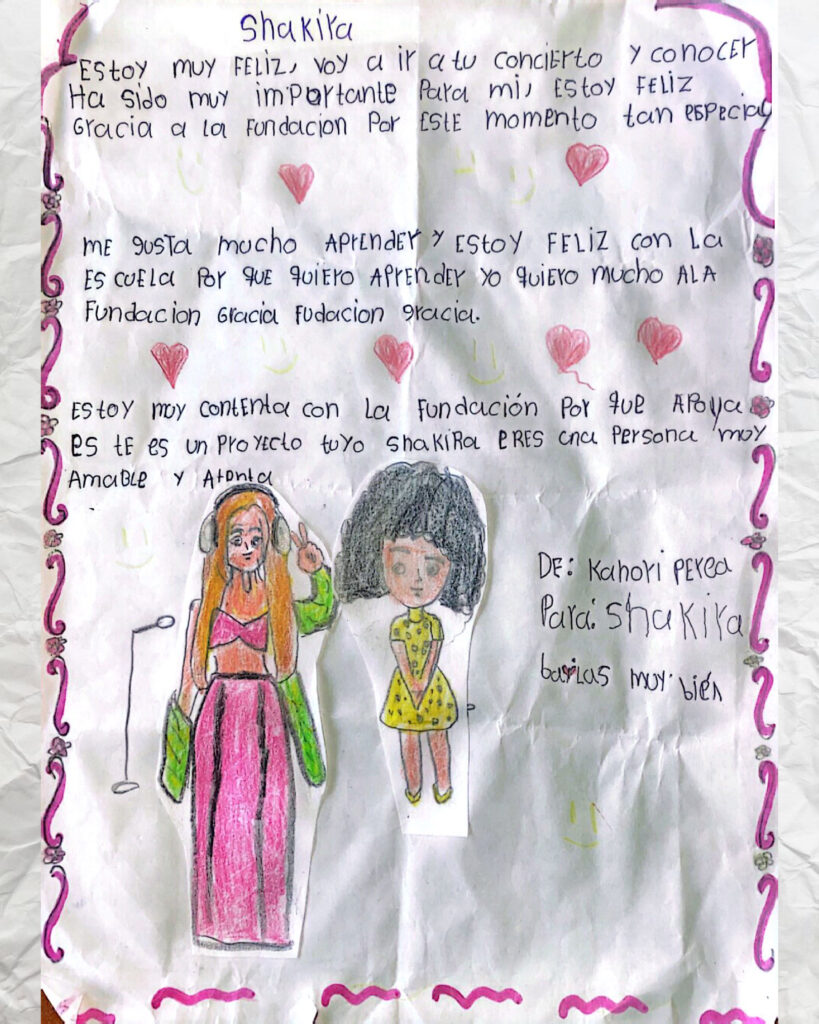 Shakira
Estoy muy feliz, voy a ir a tu concierto y conocer
Ha sido muy importante para mi, estoy feliz
Gracia a la fundacion por este momento tan especial
me gusta mucho aprender y estoy feliz con la
es cuela por que quiero aprender yo quiero mucho ala
fundacion Gracia fudacion gracia.
Estoy muy contenta con la fundación por que apoya
es te es un proyecto tuyo shakira eres una persona muy
Amable y Atenta
De: Kahori perea
Para: Shakira
barlas muy bién